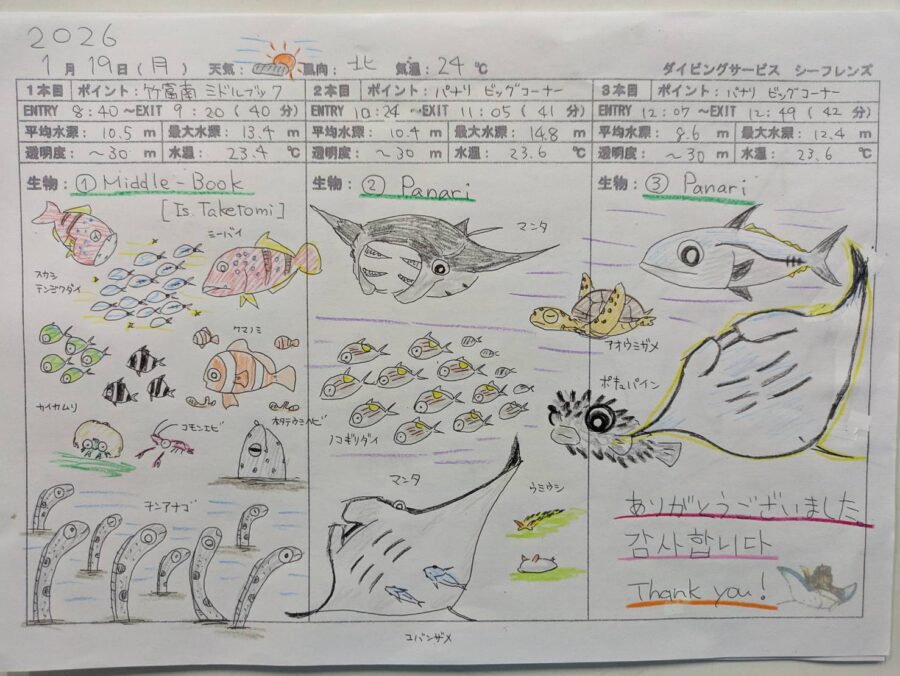 2026
1月19日(月) 天気: 風向:北 気温:24℃ ダイビングサービス シーフレンズ
1本目 ポイント:竹富南 ミドルブック
ENTRY 8:40~EXIT 9:20(40分)
平均水深: 10.5 m 最大水深: 13.4 m
透明度: ~30 m 水温: 23.4 ℃
生物: ① Middle-Book
[Is. Taketomi]
スカシ
テンジクダイ
ミーバイ
クマノミ
カイカムリ
コモンエビ
ホタテウミヘビ
チンアナゴ
2本目 ポイント:パナリ ビッグコーナー
ENTRY 10:24~EXIT 11:05(41分)
平均水深: 10.4 m 最大水深: 14.8 m
透明度: ~30 m 水温: 23.6 ℃
生物: ② Panari
マンタ
ノコギリダイ
マンタ
ウミウシ
コバンザメ
3本目 ポイント:パナリ ビッグコーナー
ENTRY 12:07~EXIT 12:49(42分)
平均水深: 8.6 m 最大水深: 12.4 m
透明度: ~30 m 水温: 23.6 ℃
生物: ③ Panari
アオウミガメ
ポキュパイン
ありがとうございました
감사합니다
Thank you!